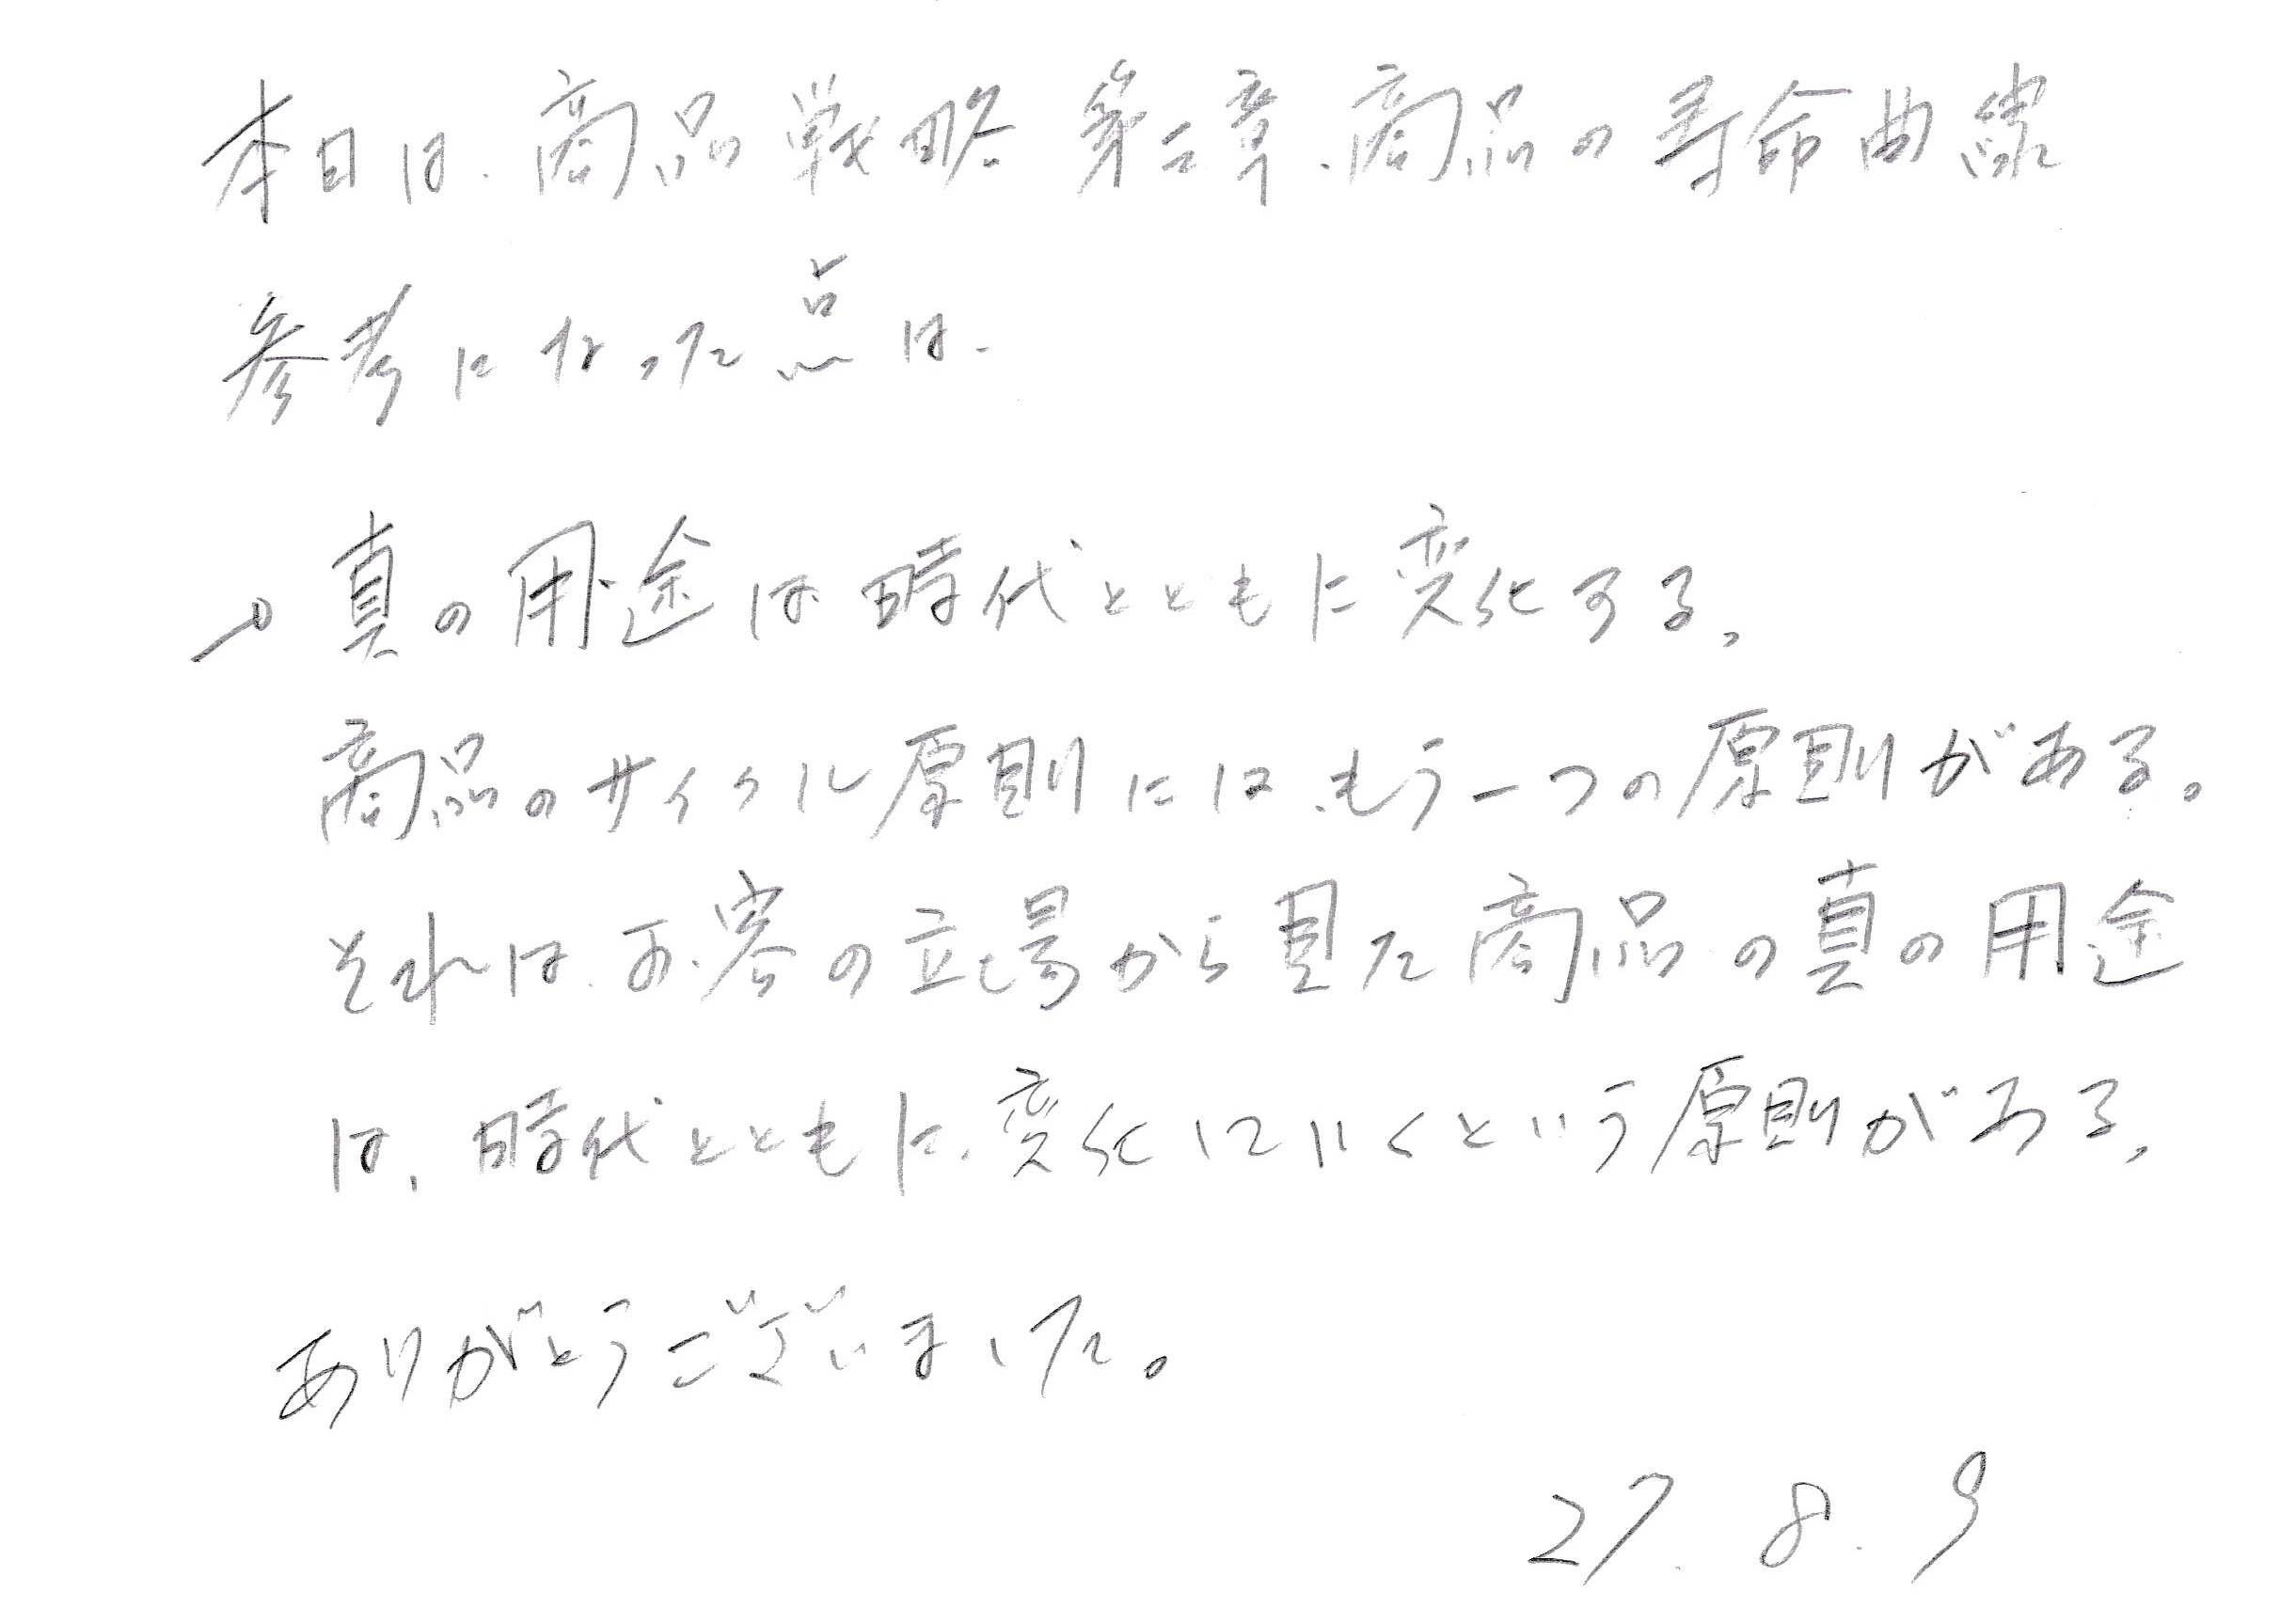 本日は、商品戦略 第二章、商品の寿命曲線
参考になった点は、
→真の用途は時代とともに変化する。
商品のサイクル原則には、もう一つの原則がある。
それは、お客の立場から見た商品の真の用途
は、時代とともに、変化していくという原則がある。
ありがとうございました。
27.8.9